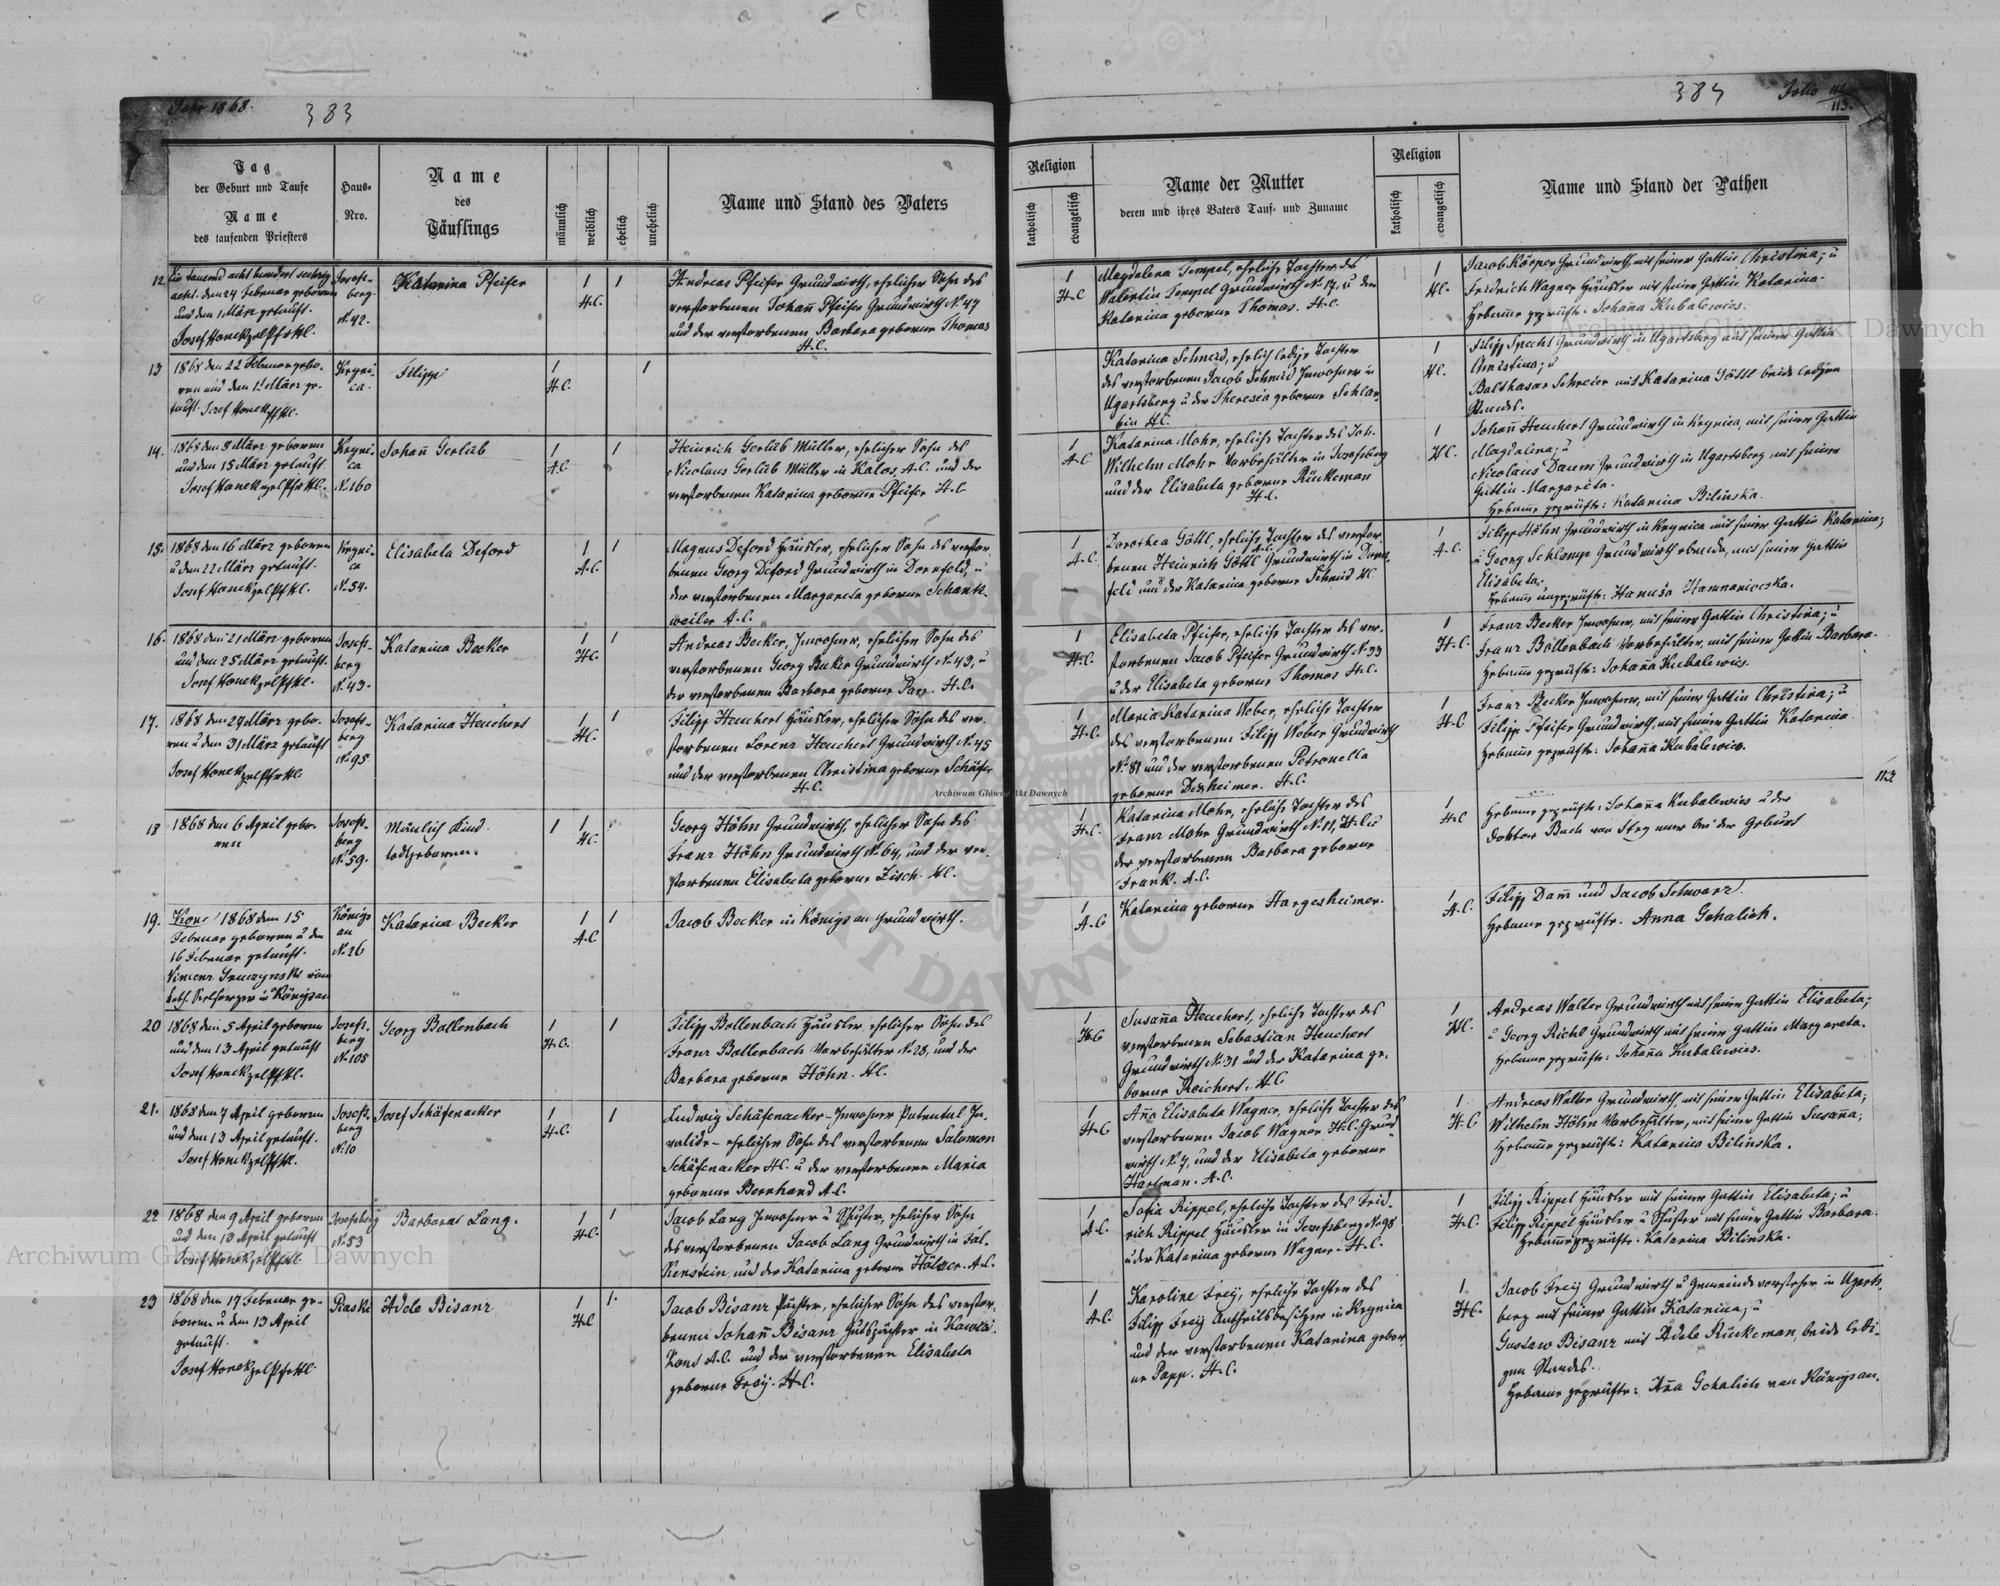 Jahr 1868.
383
384
Folio
113.
Tag
der Geburt und Taufe
Name
des taufenden Priesters
Haus-
Nro.
Name
des
Täuflings
männlich
weiblich
ehelich
unehelich
Name und Stand des Vaters
Religion
katholisch
evangelisch
Name der Mutter
deren und ihres Vaters Tauf- und Zuname
Religion
katholisch
evangelisch
Name und Stand der Pathen
12
Ein tausend acht hundert sechzig
acht. den 24 Februar geboren
und den 1 März getauft.
Josef Honekzel Pfr HC.
Josefs-
berg
N. 42.
Katarina Pfeifer
1
H.C.
1
Andreas Pfeifer Grundwirth, ehelicher Sohn des
verstorbenen Johañ Pfeifer Grundwirth N. 47
und der verstorbenen Barbara geborne Thomas
H.C.
1
H.C
Magdalena Tempel, eheliche Tochter des
Valentin Tempel Grundwirth N. 17. u der
Katarina geborne Thomas. H.C.
1
HC.
Jacob Körper Grundwirth mit seiner Gattin Christina; u
Fridrich Wagner Häusler mit seiner Gattin Katarina.
Hebamme geprüfte: Johaña Kubalewics.
13
1868 den 22 Februar gebo-
ren und den 1. März ge-
tauft. Josef Honek Pf HC.
Kryni-
ca.
Filipp
1
H.C.
1
Katarina Schmid, ehelich ledige Tochter
des verstorbenen Jacob Schmid Inwohner in
Ugartsberg u der Theresia geborne Schlar-
bin HC.
1
HC.
Filipp Specht Grundwirth in Ugartsberg mit seiner Gattin
Christina; u
Balthasar Schreier mit Katarina Göttl beide ledigen
Standes.
14.
1868 den 8 März geboren
und den 15 März getauft
Josef Honekzel Pfr HC.
Kryni-
ca
N. 160
Johañ Gerlib
1
A.C.
1
Heinrich Gerlib Müller, ehelicher Sohn des
Nicolaus Gerlib Müller in Kalos, A.C. und der
verstorbenen Katarina geborne Pfeifer H.C
1
A.C
Katarina Mohr, eheliche Tochter des Joh.
Wilhelm Mohr Vorbehälter in Josefsberg
und der Elisabeta geborne Rückeman
H.C.
1
H.C.
Johañ Heuchert Grundwirth in Krynica, mit seiner Gattin
Magdalena; u
Nicolaus Daum Grundwirth in Ugartsberg mit seiner
Gattin Margareta.
Hebame geprüfte: Katarina Bilinska.
15.
1868 den 16 März geboren
u den 22 März getauft.
Josef Honekzel Pf HC.
Kryni-
ca
N. 54.
Elisabeta Deford
1
A.C.
1
Magnus Deford Häusler, ehelicher Sohn des verstor-
benen Georg Deford Grundwirth in Dornfeld, u
der verstorbenen Margareta geborne Schank-
weiler A.C.
1
A.C.
Dorothea Göttl, eheliche Tochter des verstor-
benen Heinrich Göttl A.C. Grundwirth in Dorn-
feld und der Katarina geborne Schmid HC
1
A.C.
Filipp Höhn Grundwirth in Krynica mit seiner Gattin Katarina;
u Georg Schlamp Grundwirth ebenda, mit seiner Gattin
Elisabeta.
Hebame ungeprüfte: Hanuśa
16.
1868 den 21 März geboren
und den 25 März getauft.
Josef Honekzel Pf HC.
Josefs-
berg
N. 43.
Katarina Becker
1
HC.
1
Andreas Becker, Inwohner, ehelicher Sohn des
verstorbenen Georg Becker Grundwirth N. 43, u
der verstorbenen Barbara geborne H.C.
1
H.C.
Elisabeta Pfeifer, eheliche Tochter des ver-
storbenen Jacob Pfeifer Grundwirth N. 33
u der Elisabeta geborne Thomas H.C.
1
H.C.
Franz Becker Inwohner, mit seiner Gattin Christina; u
Franz Bollenbach Vorbehälter, mit seiner Gattin Barbara.
Hebamme geprüfte: Johaña Kubalewics.
17.
1868 den 27 März gebo-
ren u den 31 März getauft
Josef Honekzel Pfr HC.
Josefs-
berg
N. 95
Katarina Heuchert
1
HC.
1
Filipp Heuchert Häusler, ehelicher Sohn des ver-
storbenen Lorenz Heuchert Grundwirth N. 45
und der verstorbenen Christina geborne Schäfer
H.C.
1
H.C.
Maria Katarina Weber, eheliche Tochter
des verstorbenen Filipp Weber Grundwirth
N. 81 und der verstorbenen Petronella
geborne Dexheimer. H.C.
1
H.C
Franz Becker Inwohner, mit seiner Gattin Christina; u
Filipp Pfeifer Grundwirth, mit seiner Gattin Katarina.
Hebamme geprüfte: Johaña Kubalewics.
113
18
1868 den 6 April gebo-
ren
Josefs-
berg
N. 59.
Mänlich Kind.
todtgeboren.
1
1
HC.
1
Georg Höhn Grundwirth, ehelicher Sohn des
Franz Höhn Grundwirth N. 64, und der ver-
storbenen Elisabeta geborne Zisch. HC.
1
H.C.
Katarina Mohr, eheliche Tochter des
Franz Mohr Grundwirth N. 11, H.C. u
der verstorbenen Barbara geborne
Frank. A.C.
1
H.C
Hebame geprüfte: Johaña Kubalewics u der
Doktor Bach von Stry war bei der Geburt
19.
1868 den 15
Februar geboren u den
16 Februar getauft.
Vincenz
kath. Seelsorger in Königsau
Königs
au
N. 26
Katarina Becker
1
A.C
1
Jacob Becker in Königsau Grundwirth.
1
A.C
Katarina geborne Hargesheimer.
1
A.C.
Filipp Dam̃ und Jacob Schwarz.
Hebame geprüfte. Anna Gehalich.
20
1868 den 5 April geboren
und den 13 April getauft
Josef Honekzel Pf HC.
Josefs-
berg
N. 105
Georg Bollenbach
1
H.C.
1
Filipp Bollenbach Häusler, ehelicher Sohn des
Franz Bollenbach Vorbehälter N. 28, und der
Barbara geborne Höhn. HC.
1
H.C
Susaña Heuchert, eheliche Tochter des
verstorbenen Sebastian Heuchert
Grundwirth N. 31 und der Katarina ge-
borne Reichert. H.C
1
HC.
Andreas Walter Grundwirth mit seiner Gattin Elisabeta;
u Georg Richl Grundwirth mit seiner Gattin Margareta.
Hebame geprüfte: Johaña Kubalewics.
21.
1868 den 7 April geboren
und den 13 April getauft.
Josef Honekzel Pf HC.
Josefs-
berg
N. 10
Josef Schäfenacker
1
H.C.
1
Ludwig Schäfenacker - Inwohner Patental In-
valide - ehelicher Sohn des verstorbenen Salomon
Schäfenacker HC. u der verstorbenen Maria
geborne Bernhard A.C.
1
H.C
Aña Elisabeta Wagner, eheliche Tochter des
verstorbenen Jacob Wagner H.C. Grund
wirth N. 7, und der Elisabeta geborne
Hartman. A.C.
1
H.C
Andreas Walter Grundwirth, mit seiner Gattin Elisabeta;
Wilhelm Höhn Vorbehälter, mit seiner Gattin Susaña;
Hebame geprüfte: Katarina Bilinska.
22
1868 den 9 April geboren
und den 13 April getauft
Josef Honekzel Pf HC.
Josefsberg
N. 53
Barbara Lang.
1
H.C.
1
Jacob Lang Inwohner u Schuster, ehelicher Sohn
des verstorbenen Jacob Lang Grundwirth in Fal-
kenstein, und der Katarina geborne Hölzer. A.C.
1
A.C.
Sofia Rippel, eheliche Tochter des Frid-
rich Rippel Häusler in Josefsberg N. 98
u der Katarina geborne Wagner. H.C.
1
H.C.
Filipp Rippel Häusler mit seiner Gattin Elisabeta; u
Filipp Rippel Häusler u Schuster mit seiner Gattin Barbara.
Hebamme geprüfte: Katarina Bilinska.
23
1868 den 17 Februar ge-
boren u den 13 April
getauft.
Josef Honekzel Pfr HC.
Piaski
Adele Bisanz
1
H.C
1.
Jacob Bisanz Pächter, ehelicher Sohn des verstor-
benen Johañ Bisanz Gutspächter in
A.C. und der verstorbenen Elisabeta
geborne Frey. H.C.
1
A.C.
Karoline Frey, eheliche Tochter des
Filipp Frey Antheilsbesitzer in Krynica
und der verstorbenen Katarina gebor-
ne Popp. H.C.
1
H.C.
Jacob Frey Grundwirth u Gemeindevorsteher in Ugarts-
berg mit seiner Gattin Katarina; u
Gustaw Bisanz mit Adele Rückeman, beide ledi-
gen Standes.
Hebame geprüfte: Aña Gehalich von Königsau.
Archiwum Główne Akt Dawnych
Archiwum Główne Akt Dawnych
Archiwum Główne Akt Dawnych